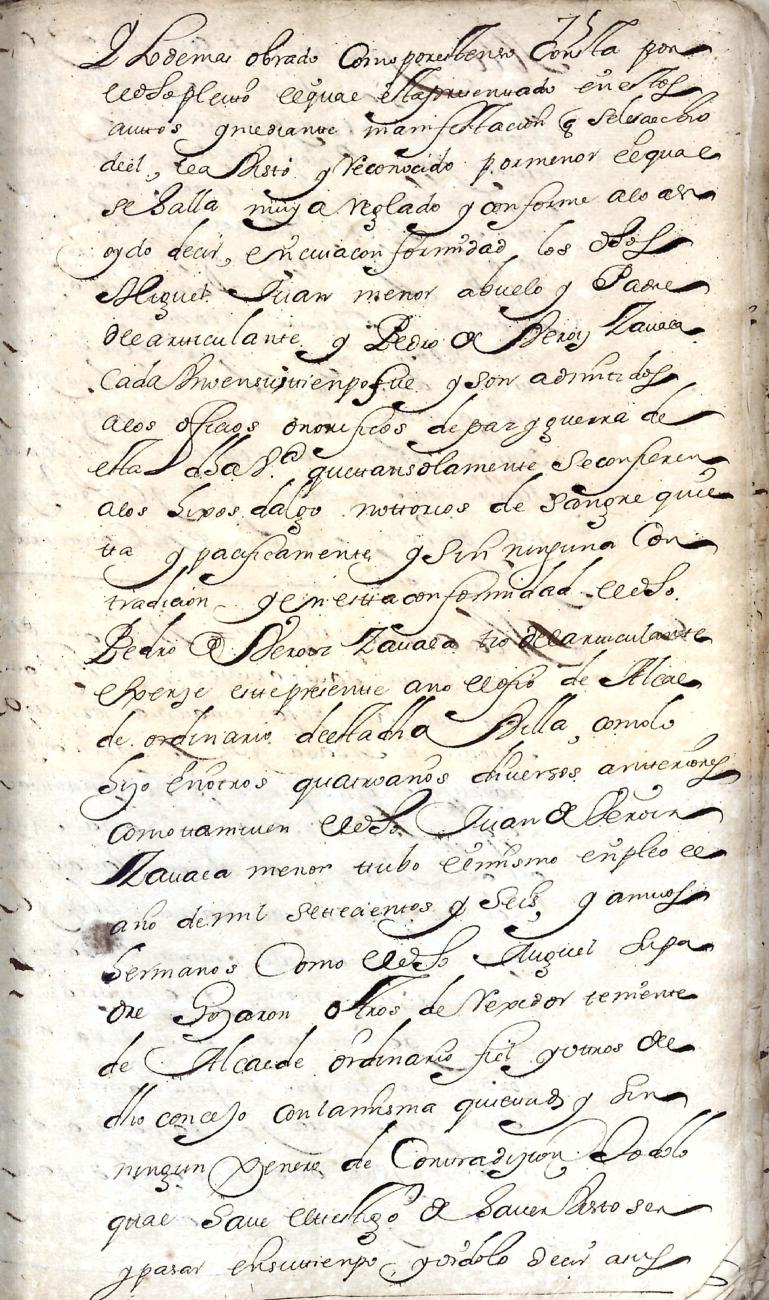 75
Y lo demas obrado Como por extenso Consta por
el dho pleito el qual esta presentado en estos
autos y mediante manifestacion q se le a echo
de el, le a Visto y reconocido por menor el qual
se halla muy a reglado y conforme a lo a
oydo decir, en cuia conformidad los dhos
Miguel Juan menor abuelo y Padre
del articulante y Pedro de Zavala
Cada Uno en su tienpo fue y son admitidos
a los oficios onorificos de paz y guerra de
esta dha Va que tan solamente se confieren
a los hixos dalgo nottorios de sangre quie
ta y pacificamente y sin ninguna Con
tradicion y en esta conformidad el dho
Pedro de Zavala tio del articulante
exerze este presente ano el ofio de Alcal
de ordinario de esta dha Villa, como lo
hizo en otros quatro años diversos anteriores
como tamvien el dho Juan de
Zavala menor tubo el mismo enpleo el
año de mil settecientos y seis, y amvos
hermanos Como el dho Miguel su pa
dre Gozaron otros de Rexidor teniente
de Alcalde ordinario fiel y otros del
dho concejo con la misma quietud y sin
ningun xenero de Contradizion Todo lo
qual save el testigo de haver Visto ser
y pasar en su tienpo y oidolo decir a sus